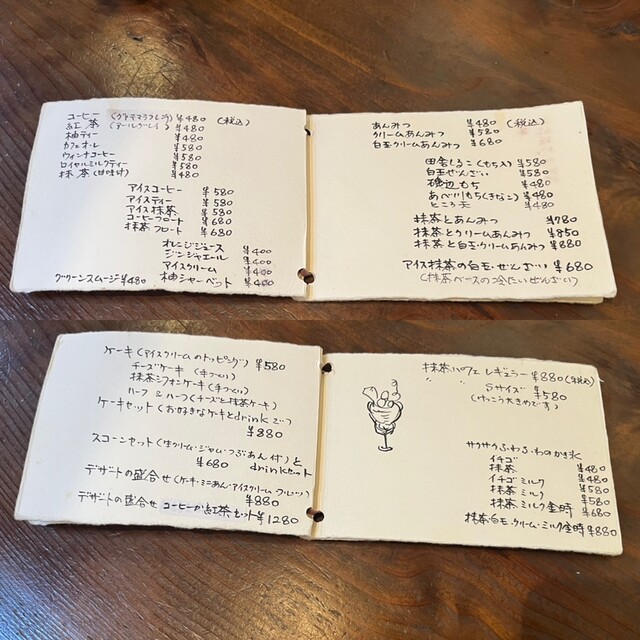 コーヒー (グァテマラフレンチ) ¥480 (税込)
紅茶 (アールグレイ) ¥480
柚ティー ¥480
カフェオ・レ ¥580
ウィンナコーヒー ¥580
ロイヤルミルクティー ¥580
抹茶(甘味付) ¥480
アイスコーヒー ¥580
アイスティー ¥580
アイス抹茶 ¥580
コーヒーフロート ¥680
抹茶フロート ¥680
オレンジジュース ¥400
ジンジャエール ¥400
アイスクリーム ¥400
柚シャーベット ¥400
グリーンスムージ ¥480
あんみつ ¥480 (税込)
クリームあんみつ ¥580
白玉クリームあんみつ ¥680
田舎しるこ(もち入) ¥580
白玉ぜんざい ¥580
磯辺もち ¥480
あべ川もち(きなこ) ¥480
ところ天 ¥480
抹茶とあんみつ ¥780
抹茶とクリームあんみつ ¥850
抹茶と白玉・クリームあんみつ ¥880
アイス抹茶の白玉・ぜんざい ¥680
(抹茶ベースの冷たいぜんざい)
ケーキ(アイスクリームのトッピング) ¥580
チーズケーキ (手づくり)
抹茶シフォンケーキ(手づくり)
ハーフ&ハーフ(チーズと抹茶ケーキ)
ケーキセット(お好きなケーキとdrinkで)
¥880
スコーンセット(生クリーム・ジャム・つぶあん付)と
¥680 drinkセット
デザートの盛合せ(ケーキ・ミニあん・アイスクリーム・フルーツ)
¥880
デザートの盛合せ コーヒーか紅茶セット ¥1280
抹茶パフェ レギュラー ¥880(税込)
〃 〃 Sサイズ ¥580
(けっこう大きめです)
サクサクふわふわのかき氷
イチゴ ¥480
抹茶 ¥480
イチゴミルク ¥580
抹茶ミルク ¥580
抹茶ミルク金時 ¥680
抹茶・白玉・クリーム・ミルク金時 ¥880